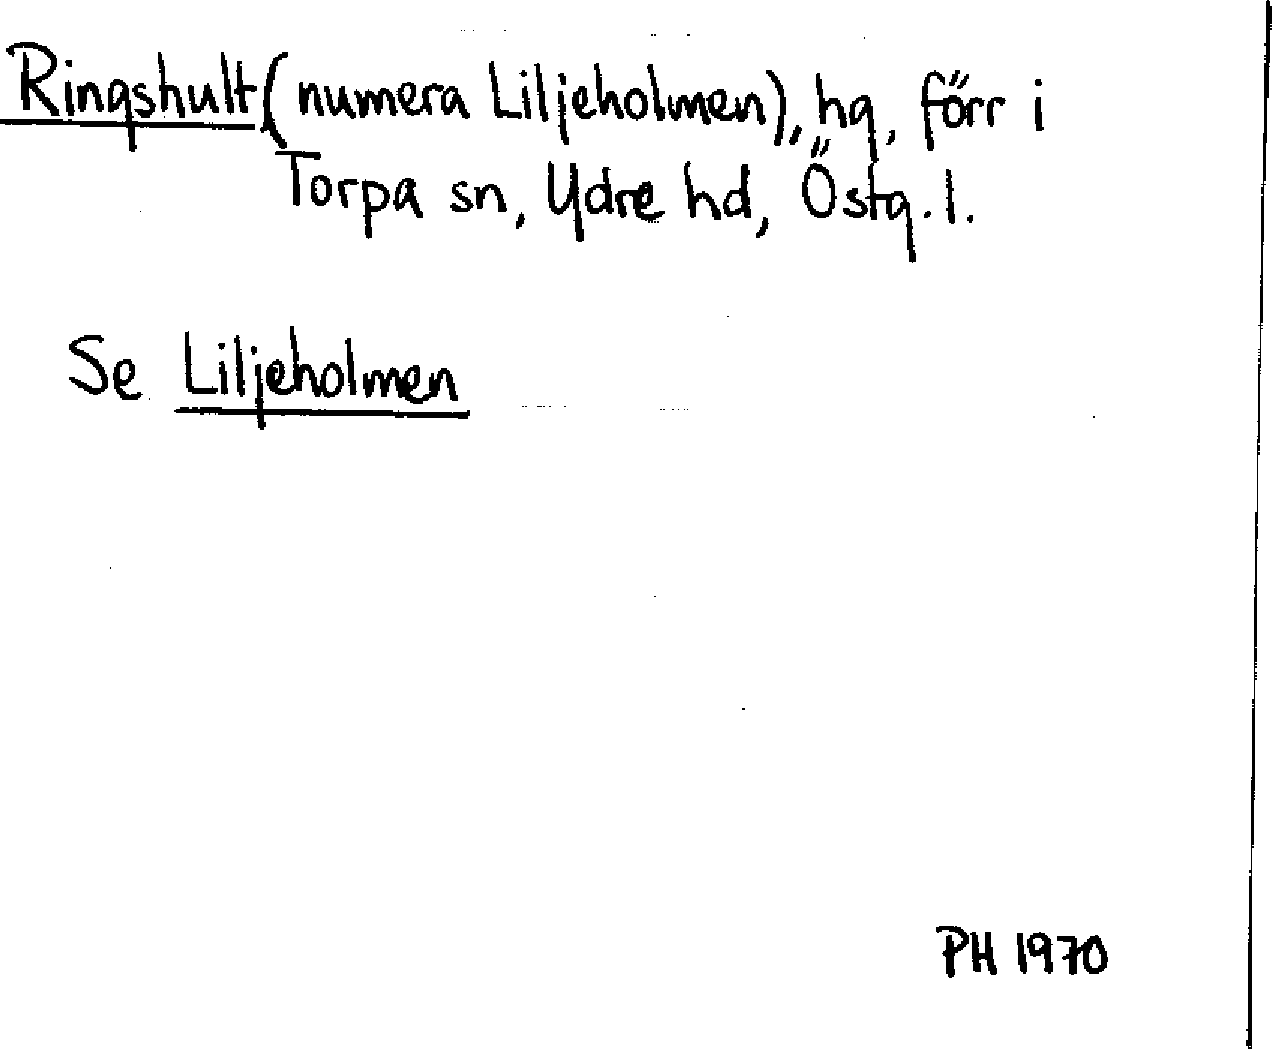 Ringshult (numera Liljeholmen), hg, förr i
Torpa sn, Ydre hd, Östg. l.
Se Liljeholmen
PH 1970